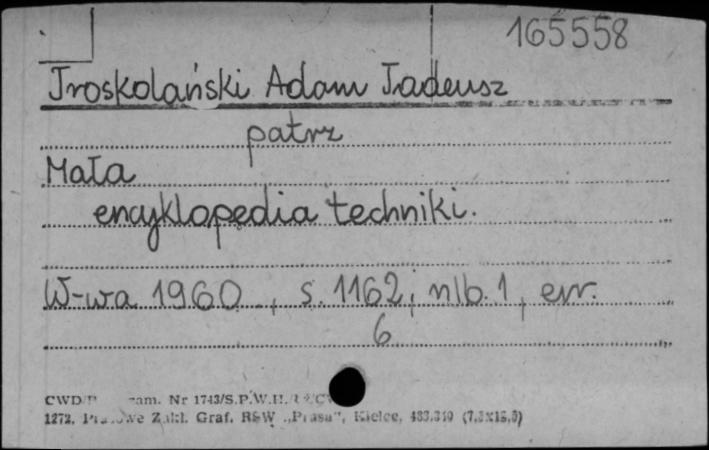 165558
Troskolański Adam Tadeusz
patrz
Mała
encyklopedia techniki.
W-wa 1960, s. 1162, nlb. 1, err.
6
zam. Nr 1743/S.P.W.H.
1272. Zakł. Graf. RSW „Prasa”, Kielce,